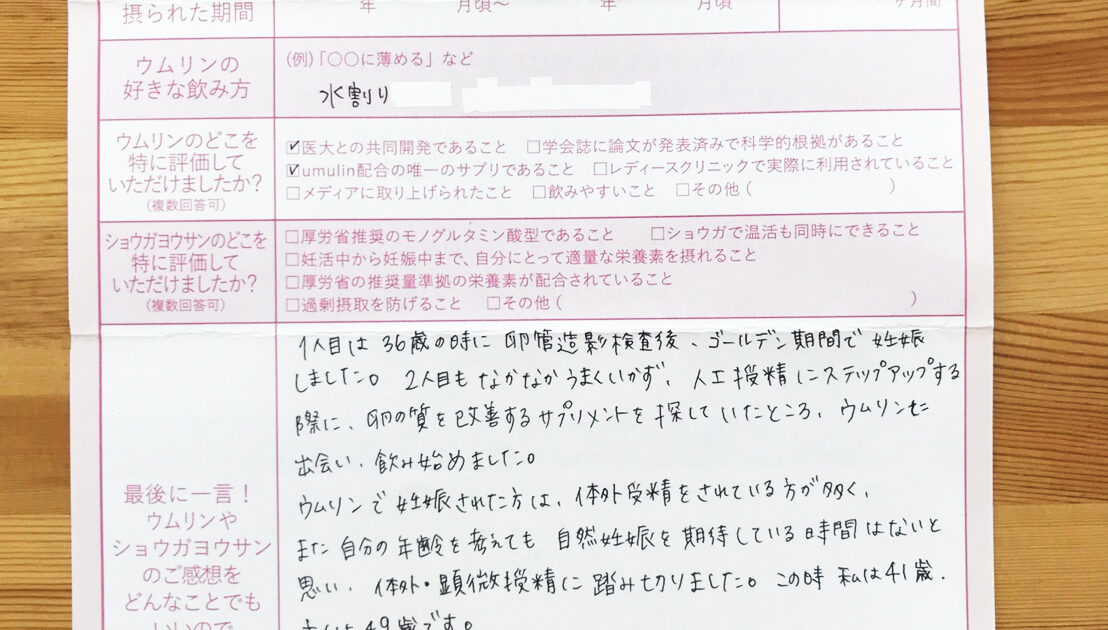 摂られた期間
年 月頃〜 年 月頃
ヶ月間
ウムリンの
好きな飲み方
(例)「〇〇に薄める」など
水割り
ウムリンのどこを
特に評価して
いただけましたか?
(複数回答可)
☑医大との共同開発であること □学会誌に論文が発表済みで科学的根拠があること
☑umulin配合の唯一のサプリであること □レディースクリニックで実際に利用されていること
□メディアに取り上げられたこと □飲みやすいこと □その他( )
ショウガヨウサンのどこを
特に評価して
いただけましたか?
(複数回答可)
□厚労省推奨のモノグルタミン酸型であること □ショウガで温活も同時にできること
□妊活中から妊娠中まで、自分にとって適量な栄養素を摂れること
□厚労省の推奨量準拠の栄養素が配合されていること
□過剰摂取を防げること □その他( )
最後に一言!
ウムリンや
ショウガヨウサン
のご感想を
どんなことでも
いいので
1人目は36歳の時に卵管造影検査後、ゴールデン期間で妊娠
しました。2人目もなかなかうまくいかず、人工授精にステップアップする
際に、卵の質を改善するサプリメントを探していたところ、ウムリンに
出会い、飲み始めました。
ウムリンで妊娠された方は、体外受精をされている方が多く、
また自分の年齢を考えても自然妊娠を期待している時間はないと
思い、体外・顕微授精に踏み切りました。この時私は41歳、
49歳です。